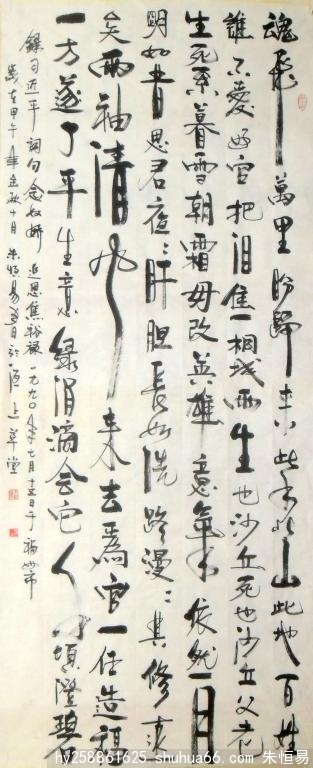 魂飛萬里盼歸來此水此山此地百姓
誰不愛好官把泪焦桐成雨生也沙丘死也沙丘父老
生死系暮雪朝霜毋改英雄意氣依然月
明如昔思君夜〻肝胆長如洗路漫〻其修遠
矣兩袖清风來去爲官一任造福
一方遂了平生意绿涓滴会它千頃澄碧
錄习近平詞句念奴娇 追思焦裕禄 一九九〇年七月十五日于福州市
歲在甲午年金秋十月朱恒易書於恒上草堂
hy258861625 shuhua66.com 朱恒易